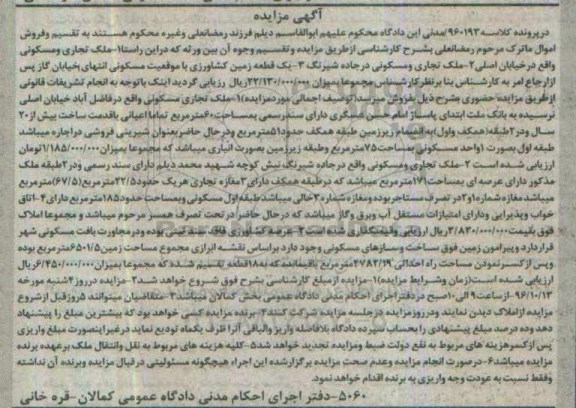 آگهی مزایده
در پرونده کلاسه ۹۶۰۱۹۳/مدنی این دادگاه محکوم علیهم ابوالقاسم دیلم فرزند رمضانعلی وغیره محکوم هستند به تقسیم وفروش
اموال ماترک مرحوم رمضانعلی بشرح کارشناسی ازطریق مزایده وتقسیم وجوه آن بین ورثه که دراین راستا۱-ملک تجاری ومسکونی
واقع درخیابان اصلی۲-ملک تجاری ومسکونی درجاده شیرنگ ۳-یک قطعه زمین کشاورزی با موقعیت مسکونی انتهای خیابان گاز پس
ازارجاع امر به کارشناس بنا برنظر کارشناس مجموعا بمیزان ۲۲/۱۳۰/۰۰۰/۰۰۰ریال ارزیابی گردید اینک باتوجه به انجام تشریفات قانونی
ازطریق مزایده حضوری بشرح ذیل بفروش میرسد(توصیف اجمالی موردمزایده)۱-ملک تجاری مسکونی واقع درفاضل آباد خیابان اصلی
نرسیده به بانک ملت ابتدای پاساژ امام حسن عسگری دارای سندرسمی بمساحت۶۰مترمربع تماما اعیانی باقدمت ساخت بیش از۲۰
سال ودر۲طبقه(همکف واول)به انضمام زیرزمین طبقه همکف حدود۵۱مترمربع ودرحال حاضر بعنوان شیرینی فروشی دراجاره میباشد
طبقه اول بصورت (واحد مسکونی بمساحت۷۵مترمربع وطبقه زیرزمین بصورت انباری میباشد که مجموعا بمیزان۱/۱۸۵/۰۰۰/۰۰۰تومان
ارزیابی شده است ۲-ملک تجاری ومسکونی واقع درجاده شیرنگ نبش کوچه شهید محمد دیلم دارای سند رسمی ودر۲طبقه ملک
مذکور دارای عرصه ای بمساحت۱۷۱مترمربع میباشد که درطبقه همکف دارای۳مغازه تجاری هریک حدود۲۲/۵مترمربع(۶۷/۵)مترمربع
میباشد مغازه شماره۱و۲در تصرف مستاجر بوده ومغازه شماره۳خالی میباشد طبقه اول مسکونی وبمساحت حدود۱۸۵مترمربع دارای۲اتاق
خواب وپذیرایی ودارای امتیازات مستقل آب وبرق وگاز میباشد که درحال حاضر در تحت تصرف همسر مرحوم میباشد و مجموعا املاک
فوق بقیمت۳/۸۳۰/۰۰۰/۰۰۰ریال ارزیابی وقیمتگذاری شده است۳-عرصه کشاورزی فاقد سند ثبتی بوده ودرمجاورت بافت مسکونی شهر
قراردارد وپیرامون زمین فوق ساخت وسازهای مسکونی وجود دارد براساس نقشه ابرازی مجموع مساحت زمین۶۵۰۱/۵مترمربع بوده
وپس ازکسرنمودن مساحت راه احداثی ۴۷۸۲/۱۹مترمربع باقیمانده که به۱۸قطعه تقسیم شده که مجموعا بمیزان۶/۴۵۰/۰۰۰/۰۰۰ریال
ارزیابی شده است(زمان وشرایط مزایده)۱-مزایده ازمبلغ کارشناسی بشرح فوق شروع خواهد شد۲-مزایده درروز۴شنبه مورخه
۹۶/۱۰/۱۳-ازساعت۹الی۱۰صبح دردفتراجرای احکام مدنی دادگاه عمومی بخش کمالان میباشد۳-متقاضیان میتوانند ۵روزقبل ازشروع
مزایده ازاملاک دیدن نمایند ودرروزمزایده درجلسه مزایده شرکت کنند۴-برنده مزایده کسی خواهد بود که بیشترین مبلغ را پیشنهاد
دهد وده درصد مبلغ پیشنهادی را بحساب سپرده دادگاه بلافاصله واریز والباقی آنرا ظرف یکماه تودیع نماید درغیراینصورت مبلغ واریزی
پس ازکسرهزینه های مربوط به نفع دولت ضبط ومزایده تجدید خواهد شد۵-کلیه هزینه های مربوط به نقل وانتقال ملک برعهده برنده
مزایده میباشد۶-درصورت انجام مزایده وعدم صحت مزایده برگزارشده این اجراء هیچگونه مسئولیتی درقبال مزایده وبرنده آن نداشته
وفقط نسبت به عودت وجه واریزی به برنده اقدام خواهد نمود.
۵۰۶۰-دفتر اجرای احکام مدنی دادگاه عمومی کمالان-قره خانی